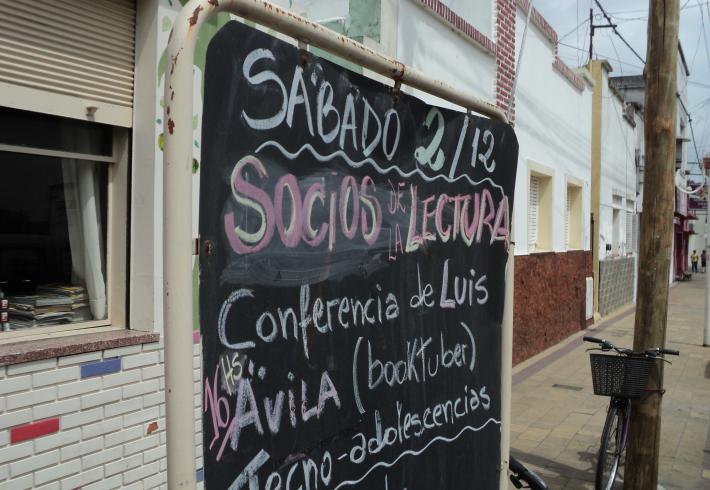 SÁBADO 2/12
SOCIOS DE LA LECTURA
Conferencia de Luis
16 HS ÁVILA (booktuber)
Tecno-adolescencias